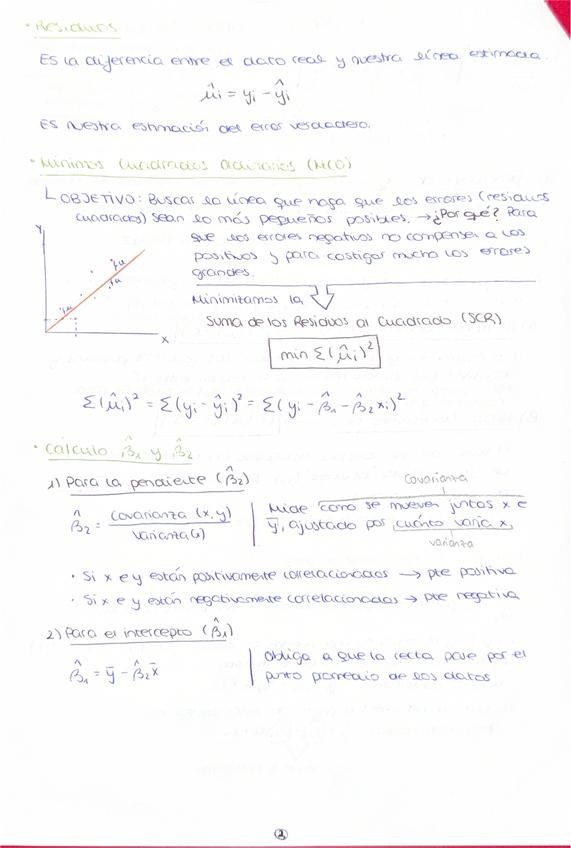 · Residuos
Es la diferencia entre el dato real y nuestra línea estimada.
û̂i = yi - ŷi
Es nuestra estimación del error verdadero.
· Mínimos Cuadrados Ordinarios (MCO)
↳ OBJETIVO: Buscar la línea que haga que los errores (residuos
cuadrados) sean lo más pequeños posibles. → ¿Por qué? Para
que los errores negativos no compensen a los
positivos y para castigar mucho los errores
grandes.
y
x
û
û
û
Minimizamos la
Suma de los Residuos al Cuadrado (SCR)
min Σ(ûi)²
Σ(ûi)² = Σ(yi - ŷi)² = Σ(yi - β̂1 - β̂2 xi)²
· Cálculo β̂1 y β̂2
1) Para la pendiente (β̂2)
covarianza
β̂2 = covarianza (x,y) / varianza(x)
Mide como se mueven juntos x e
y, ajustado por cuánto varía x.
varianza
· Si x e y están positivamente correlacionados → pte positiva
· Si x e y están negativamente correlacionados → pte negativa
2) Para el intercepto (β̂1)
β̂1 = ȳ - β̂2x̄
Obliga a que la recta pase por el
punto promedio de los datos
2